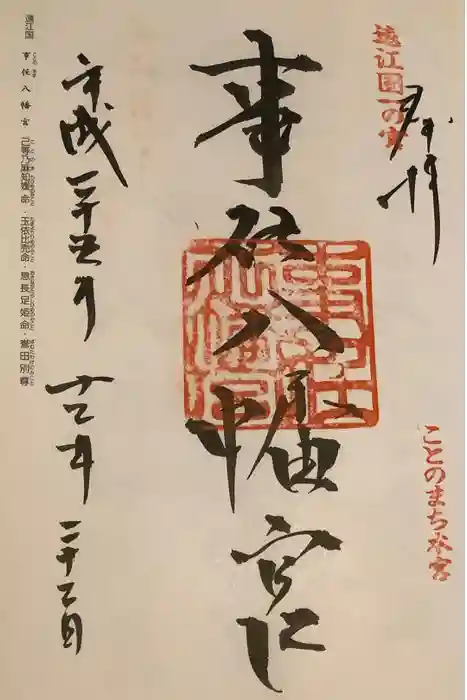 遠江国一の宮
奉拝
ことのまち本宮
事任八幡宮
事任八幡宮
平成二十五年
十二月
二十三日
遠江国 事任八幡宮 己等乃麻知媛命・玉依比売命・息長足姫命・誉田別尊